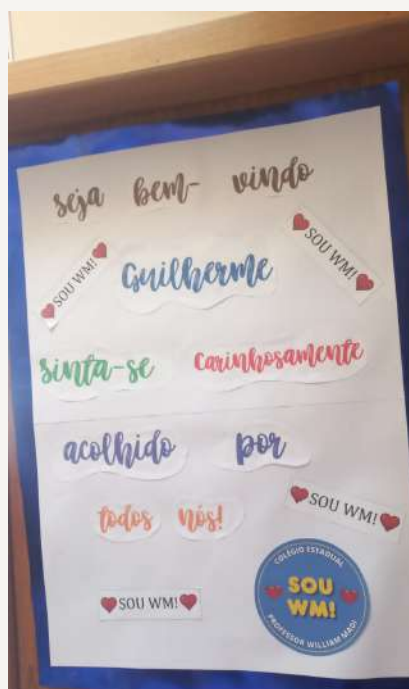 seja bem-vindo
SOU WM!
Guilherme
SOU WM!
sinta-se carinhosamente
acolhido por
todos nós!
SOU WM!
SOU WM!
COLÉGIO ESTADUAL
SOU
WM!
PROFESSOR WILLIAM MADI